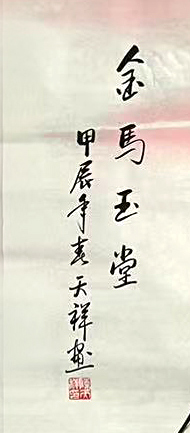 金馬玉堂
甲辰年春天祥画